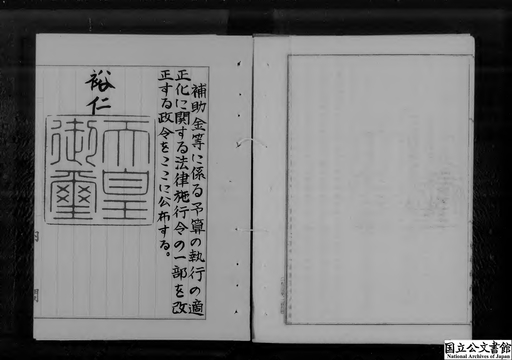 補助金等に係る予算の執行の適
正化に関する法律施行令の一部を改
正する政令をここに公布する。
裕仁
天皇
御璽
内
閣
国立公文書館
National Archives of Japan